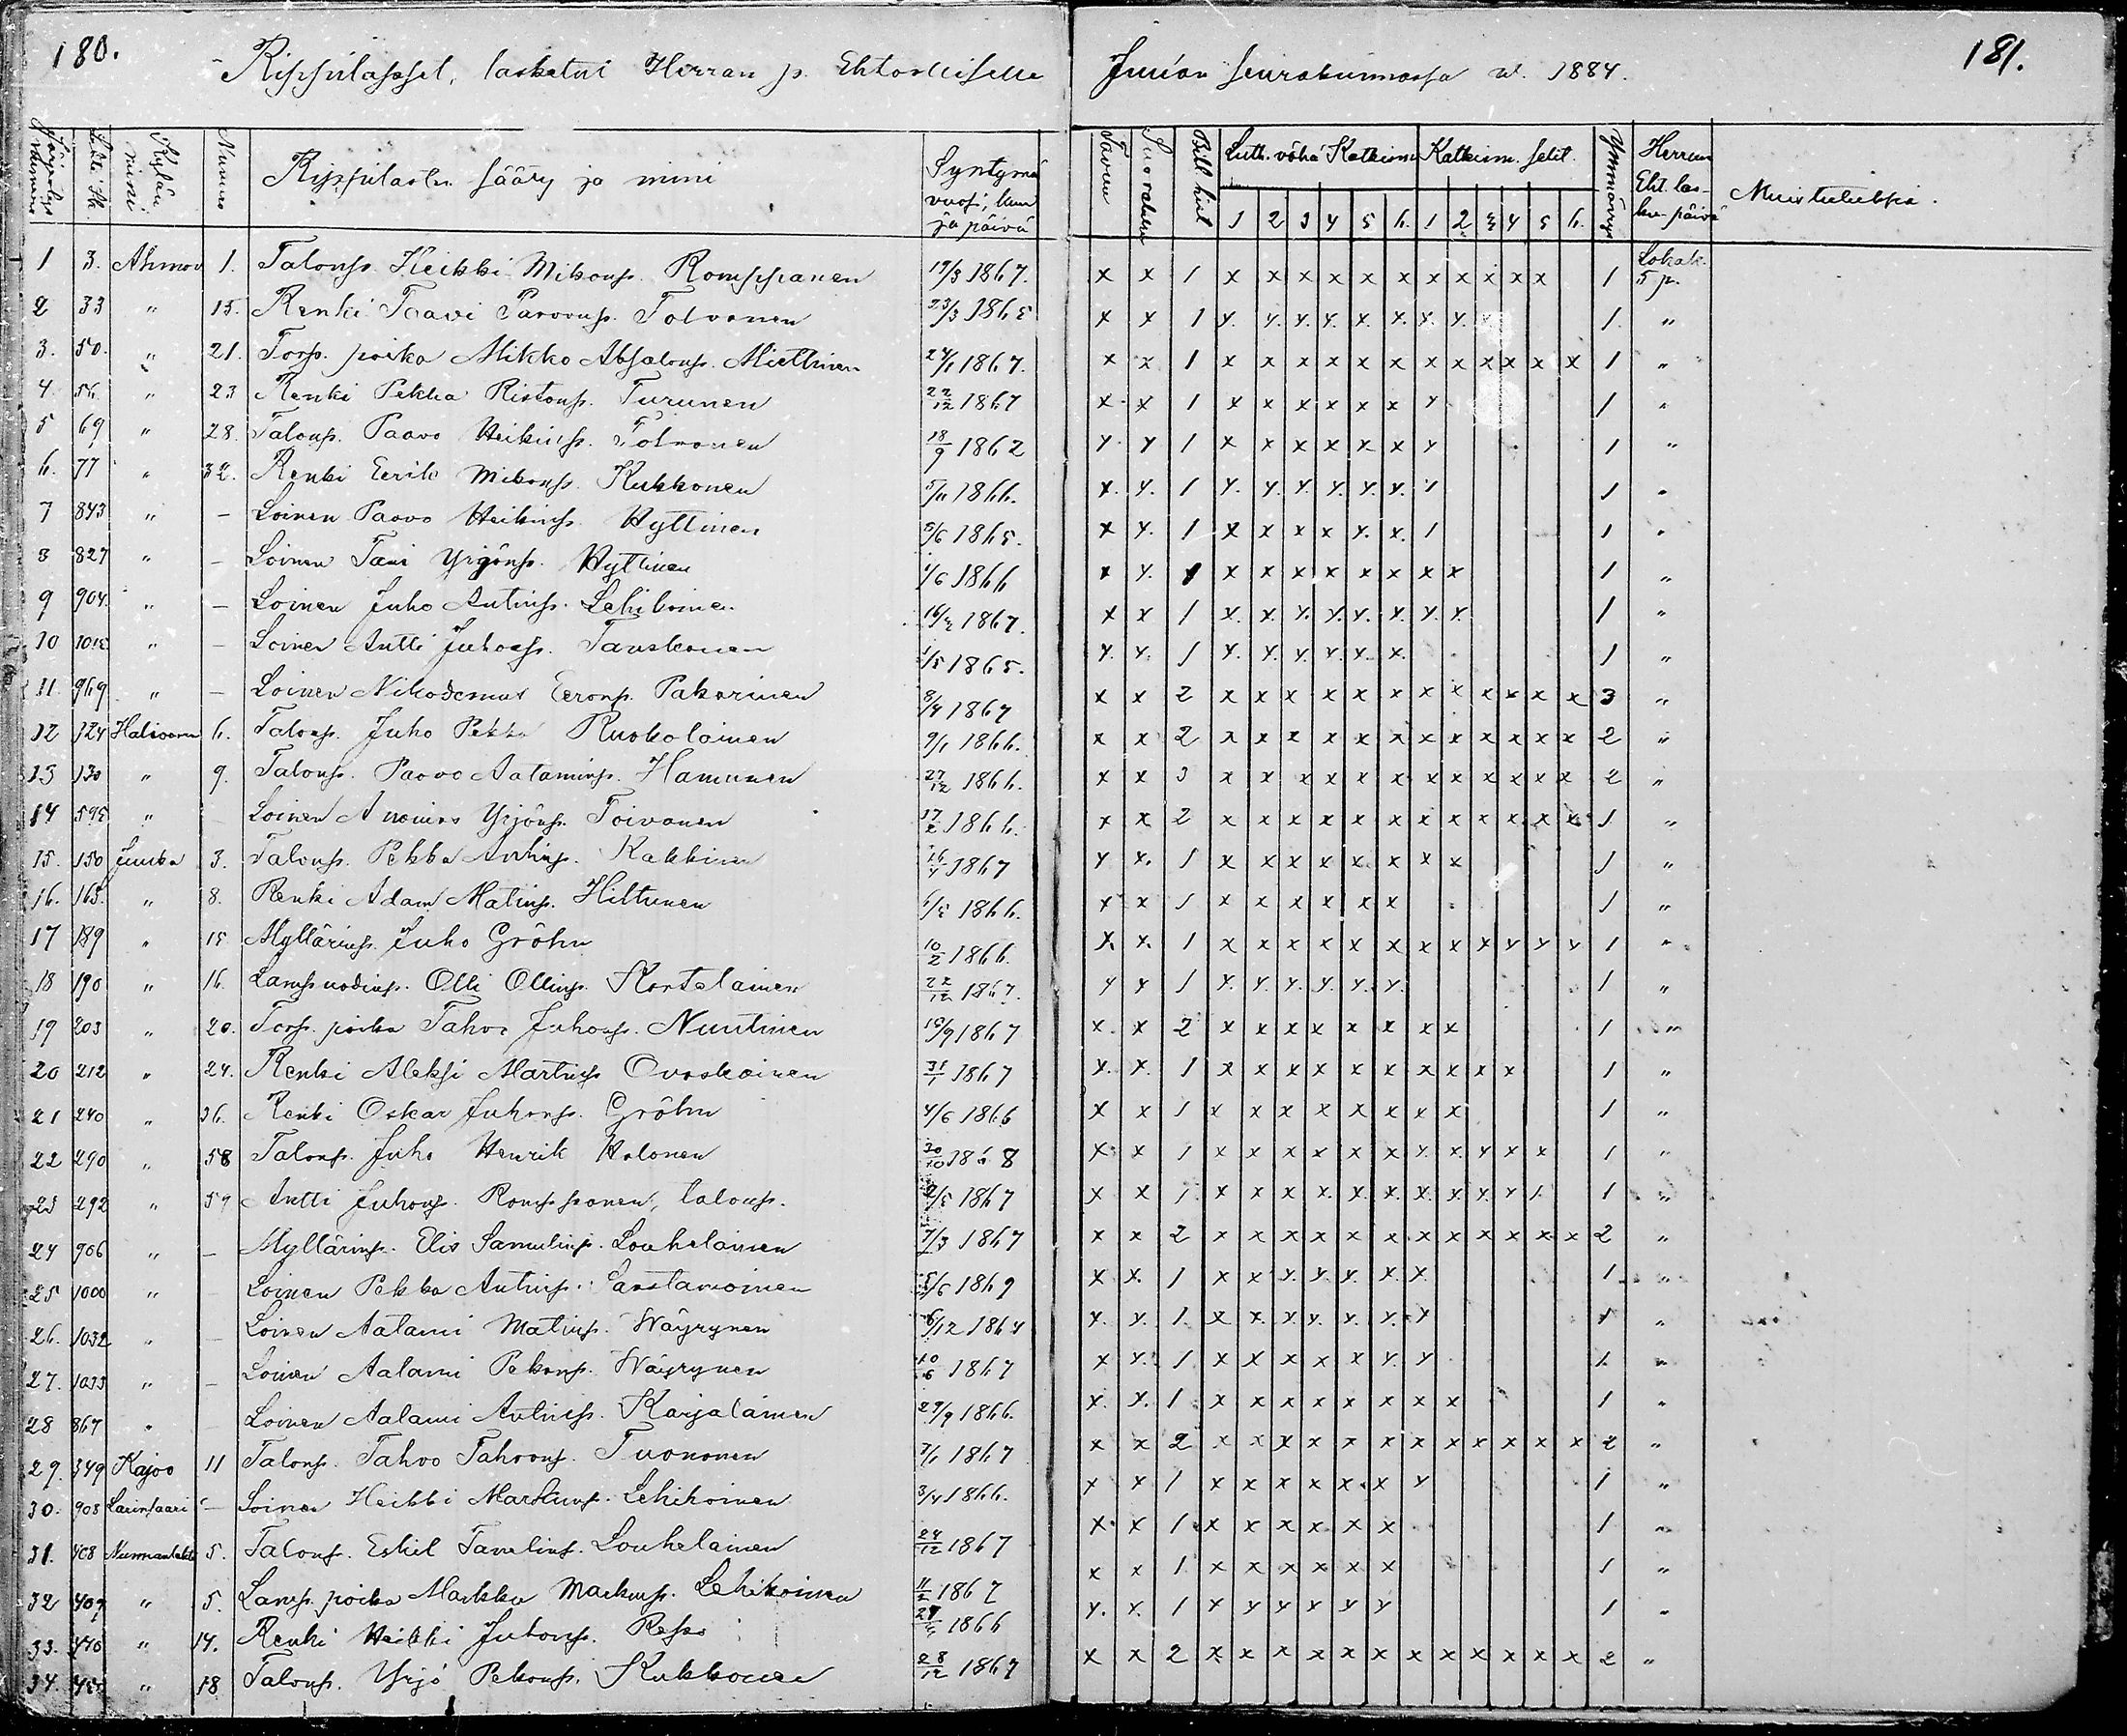 180.
Rippilapset, lasketut Herran p. Ehtoolliselle Juuan seurakunnassa w. 1884.
181.
Kylän nimi
Numero
Rippilasten sääty ja nimi
Syntymä vuosi, kuu ja päivä
Tavuu
Sisä luku
Bibl. hist
Luth. vähä Katkism
Katkism. selit.
Ymmärrys
Herran Eht. las- ku-päivä
Muistutuksia.
1 2 3 4 5 6. 1 2 3 4 5 6.
1 3. Ahmov 1. Talonp. Heikki Mikonp. Romppanen 19/3 1867. x x 1 x x x x x x x x x x x 1 Lokak. 5 p.
2 33 " 15. Renki Taavi Paavonp. Tolvanen 23/3 1865 x x 1 x. x. x. x. x. x. x. x. x 1. "
3. 50. " 21. Torp. poika Mikko Absalonp. Miettinen 24/1 1867. x x 1 x x x x x x x x x x x x 1 "
4 56. " 23 Renki Pekka Ristonp. Turunen 22/12 1867 x x 1 x x x x x x x 1 "
5 69 " 28. Talonp. Paavo Heikinp. Tolvanen 18/9 1862 x x 1 x x x x x x x 1 "
6. 77 " 32. Renki Eerik Mikonp. Kukkonen 5/11 1866. x. x. 1 x. x. x. x. x. x. 1 1 "
7 843 " - Loinen Paavo Heikinp. Hyttinen 5/6 1865. x x. 1 x x x x x. x. 1 1 "
8 827 " - Loinen Tani Yrjönp. Hyttinen 1/6 1866 x x. 1 x x x x x x x x 1 "
9 904. " - Loinen Juho Antinp. Lehikoinen 16/2 1867. x x 1 x. x. x. x. x. x. x. x. 1 "
10 1015 " - Loinen Antti Juhonp. Tanskanen 1/5 1865. x. x. 1 x. x. x. x. x. x. 1 "
11. 969 " - Loinen Nikodemus Eeronp. Pakarinen 8/4 1867 x x 2 x x x x x x x x x x x x 3 "
12 124 Halivaara 6. Talonp. Juho Pekka Ruokolainen 9/1 1866. x x 2 x x x x x x x x x x x x 2 "
13 130 " 9. Talonp. Paavo Aataminp. Hämunen 27/12 1866. x x 3 x x x x x x x x x x x x 2 "
14 595 " Loinen Yrjönp. Toivanen 17/2 1866. x x 2 x x x x x x x x x x x x 1 "
15. 150 Juuka 3. Talonp. Pekka Antinp. Kakkinen 16/4 1867 x x. 1 x x x x x x x x 1 "
16. 165. " 8. Renki Adam Matinp. Hiltunen 6/5 1866. x x 1 x x x x x x 1 "
17 189 " 15 Myllärinp. Juho Gröhn 10/2 1866. x. x. 1 x x x x x x x x x x x x 1 "
18 190 " 16. Lampuodinp. Olli Ollinp. Kortelainen 22/12 1867. x x 1 x. x. x. x. x. x. 1 "
19 203 " 20. Torp. poika Tahvo Juhonp. Nuutinen 10/9 1867 x. x 2 x x x x x x x x 1 "
20 212 " 24. Renki Aleksi Martinp. Ovaskainen 31/1 1867 x. x. 1 x x x x x x x x x x 1 "
21 240 " 36. Renki Oskar Juhonp. Gröhn 4/6 1866 x x 1 x x x x x x x x 1 "
22 290 " 58 Talonp. Juho Henrik Holonen 30/10 1868 x x 1 x x x x x x x. x. x x x 1 "
23 292 " 59 Antti Juhonp. Romppanen, talonp. 2/5 1867 x x 1. x x x x x. x. x. x. x. x 1 1 "
24 906 " - Myllärinp. Elis Samulinp. Louhelainen 7/3 1867 x x 2 x x x x x x x x x x x x 2 "
25 1000 " Loinen Pekka Antinp. 5/6 1869 x x. 1 x x x. x. x. x. x. 1 "
26. 1032 " Loinen Aatami Matinp. Wäyrynen 6/12 1864 x. x. 1. x x. x. x. x. x. x 1 "
27. 1033 " - Loinen Aatami Pekonp. Wäyrynen 10/6 1867 x x. 1 x x x x x x x 1. "
28 867 " Loinen Aatami Antinp. Karjalainen 29/9 1866. x. x. 1 x x x x x x x x 1 "
29. 349 Kajoo 11 Talonp. Tahvo Tahvonp. Tuononen 7/1 1867 x x 2 x x x x x x x x x x x x 2 "
30. 908 Larinsaari - Loinen Heikki Markunp. Lehikoinen 3/4 1866. x x 1 x x x x x x x 1 "
31. 408 Nunnanlahti 5. Talonp. Eskil Tanelinp. Louhelainen 24/12 1867 x x 1 x x x x x x 1 "
32 409 " 5. Lamp. poika Markku Markunp. Lehikoinen 11/2 1867 x x 1 x x x x x x 1 "
33. 446 " 14. Renki Heikki Juhonp. 1866 x. x. 1 x x x x x x 1 "
34. " 18 Talonp. Yrjö Pekonp. Kukkonen 28/12 1867 x x 2 x x x x x x x x x x x x 2 "